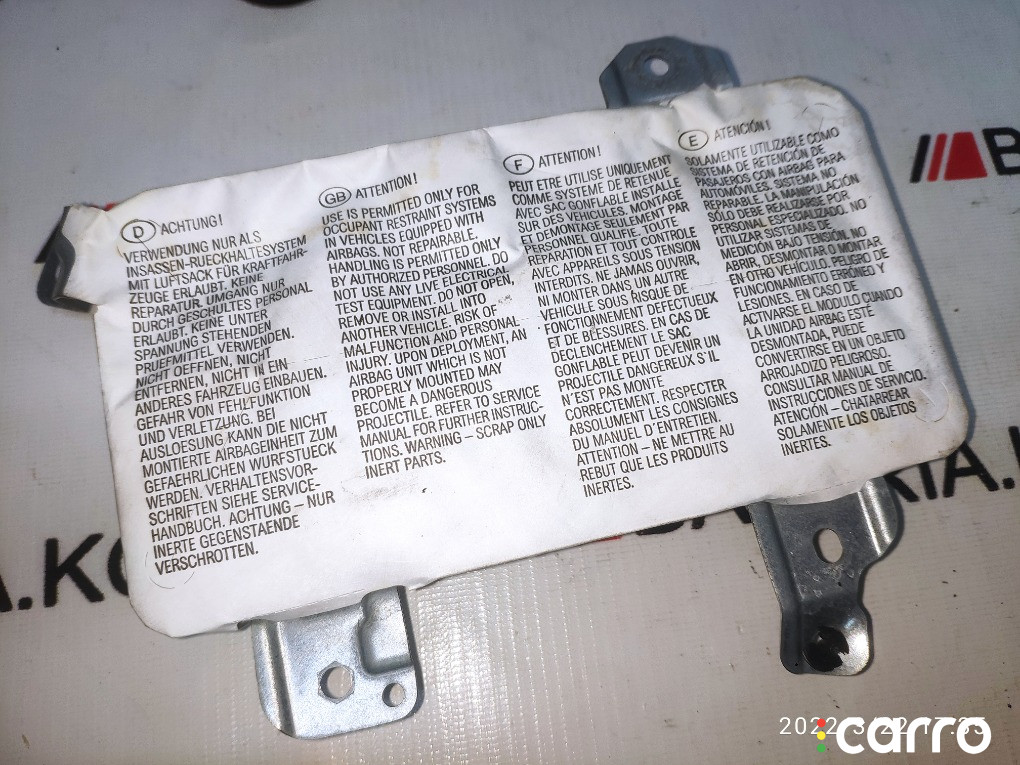 D ACHTUNG!
VERWENDUNG NUR ALS
INSASSEN-RUECKHALTESYSTEM
MIT LUFTSACK FÜR KRAFTFAHR-
ZEUGE ERLAUBT. KEINE
REPARATUR. UMGANG NUR
DURCH GESCHULTES PERSONAL
ERLAUBT. KEINE UNTER
SPANNUNG STEHENDEN
PRUEFMITTEL VERWENDEN.
NICHT OEFFNEN, NICHT
ENTFERNEN, NICHT IN EIN
ANDERES FAHRZEUG EINBAUEN.
GEFAHR VON FEHLFUNKTION
UND VERLETZUNG. BEI
AUSLOESUNG KANN DIE NICHT
MONTIERTE AIRBAGEINHEIT ZUM
GEFAEHRLICHEN WURFSTUECK
WERDEN. VERHALTENSVOR-
SCHRIFTEN SIEHE SERVICE-
HANDBUCH. ACHTUNG – NUR
INERTE GEGENSTAENDE
VERSCHROTTEN.
GB ATTENTION!
USE IS PERMITTED ONLY FOR
OCCUPANT RESTRAINT SYSTEMS
IN VEHICLES EQUIPPED WITH
AIRBAGS. NOT REPAIRABLE.
HANDLING IS PERMITTED ONLY
BY AUTHORIZED PERSONNEL. DO
NOT USE ANY LIVE ELECTRICAL
TEST EQUIPMENT. DO NOT OPEN,
REMOVE OR INSTALL INTO
ANOTHER VEHICLE. RISK OF
MALFUNCTION AND PERSONAL
INJURY. UPON DEPLOYMENT, AN
AIRBAG UNIT WHICH IS NOT
PROPERLY MOUNTED MAY
BECOME A DANGEROUS
PROJECTILE. REFER TO SERVICE
MANUAL FOR FURTHER INSTRUC-
TIONS. WARNING – SCRAP ONLY
INERT PARTS.
F ATTENTION!
PEUT ETRE UTILISE UNIQUEMENT
COMME SYSTEME DE RETENUE
AVEC SAC GONFLABLE INSTALLE
SUR DES VEHICULES. MONTAGE
ET DEMONTAGE SEULEMENT PAR
PERSONNEL QUALIFIE. TOUTE
REPARATION ET TOUT CONTROLE
AVEC APPAREILS SOUS TENSION
INTERDITS. NE JAMAIS OUVRIR,
NI MONTER DANS UN AUTRE
VEHICULE SOUS RISQUE DE
FONCTIONNEMENT DEFECTUEUX
ET DE BLESSURES. EN CAS DE
DECLENCHEMENT LE SAC
GONFLABLE PEUT DEVENIR UN
PROJECTILE DANGEREUX S'IL
N'EST PAS MONTE
CORRECTEMENT. RESPECTER
ABSOLUMENT LES CONSIGNES
DU MANUEL D'ENTRETIEN.
ATTENTION – NE METTRE AU
REBUT QUE LES PRODUITS
INERTES.
E ATENCIÓN!
SOLAMENTE UTILIZABLE COMO
SISTEMA DE RETENCIÓN DE
PASAJEROS CON AIRBAG PARA
AUTOMÓVILES. SISTEMA NO
REPARABLE. LA MANIPULACIÓN
SÓLO DEBE REALIZARSE POR
PERSONAL ESPECIALIZADO. NO
UTILIZAR SISTEMAS DE
MEDICIÓN BAJO TENSIÓN. NO
ABRIR, DESMONTAR O MONTAR
EN OTRO VEHÍCULO. PELIGRO DE
FUNCIONAMIENTO ERRÓNEO Y
LESIONES. EN CASO DE
ACTIVARSE EL MODULO CUANDO
LA UNIDAD AIRBAG ESTÉ
DESMONTADA, PUEDE
CONVERTIRSE EN UN OBJETO
ARROJADIZO PELIGROSO.
CONSULTAR MANUAL DE
INSTRUCCIONES DE SERVICIO.
ATENCIÓN – CHATARREAR
SOLAMENTE LOS OBJETOS
INERTES.
carro